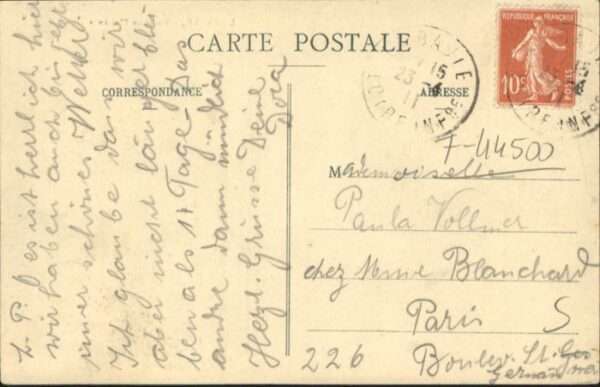 CARTE POSTALE
CORRESPONDANCE
ADRESSE
RÉPUBLIQUE FRANÇAISE
10c
POSTES
LA BAULE
15
23
11
LOIRE INFRE
7-44500
Mademoiselle
Paula Vollmer
chez Mme Blanchard
Paris S
226 Boulev. St. Ger
Germain
L. P. es ist herrlich hier
wir haben auch bis jetzt
immer schönes Wetter.
Ich glaube dass wir
aber nicht länger blei
ben als 14 Tage. Das
andre dann mündlich
Herzl. Grüsse Deine
Dora